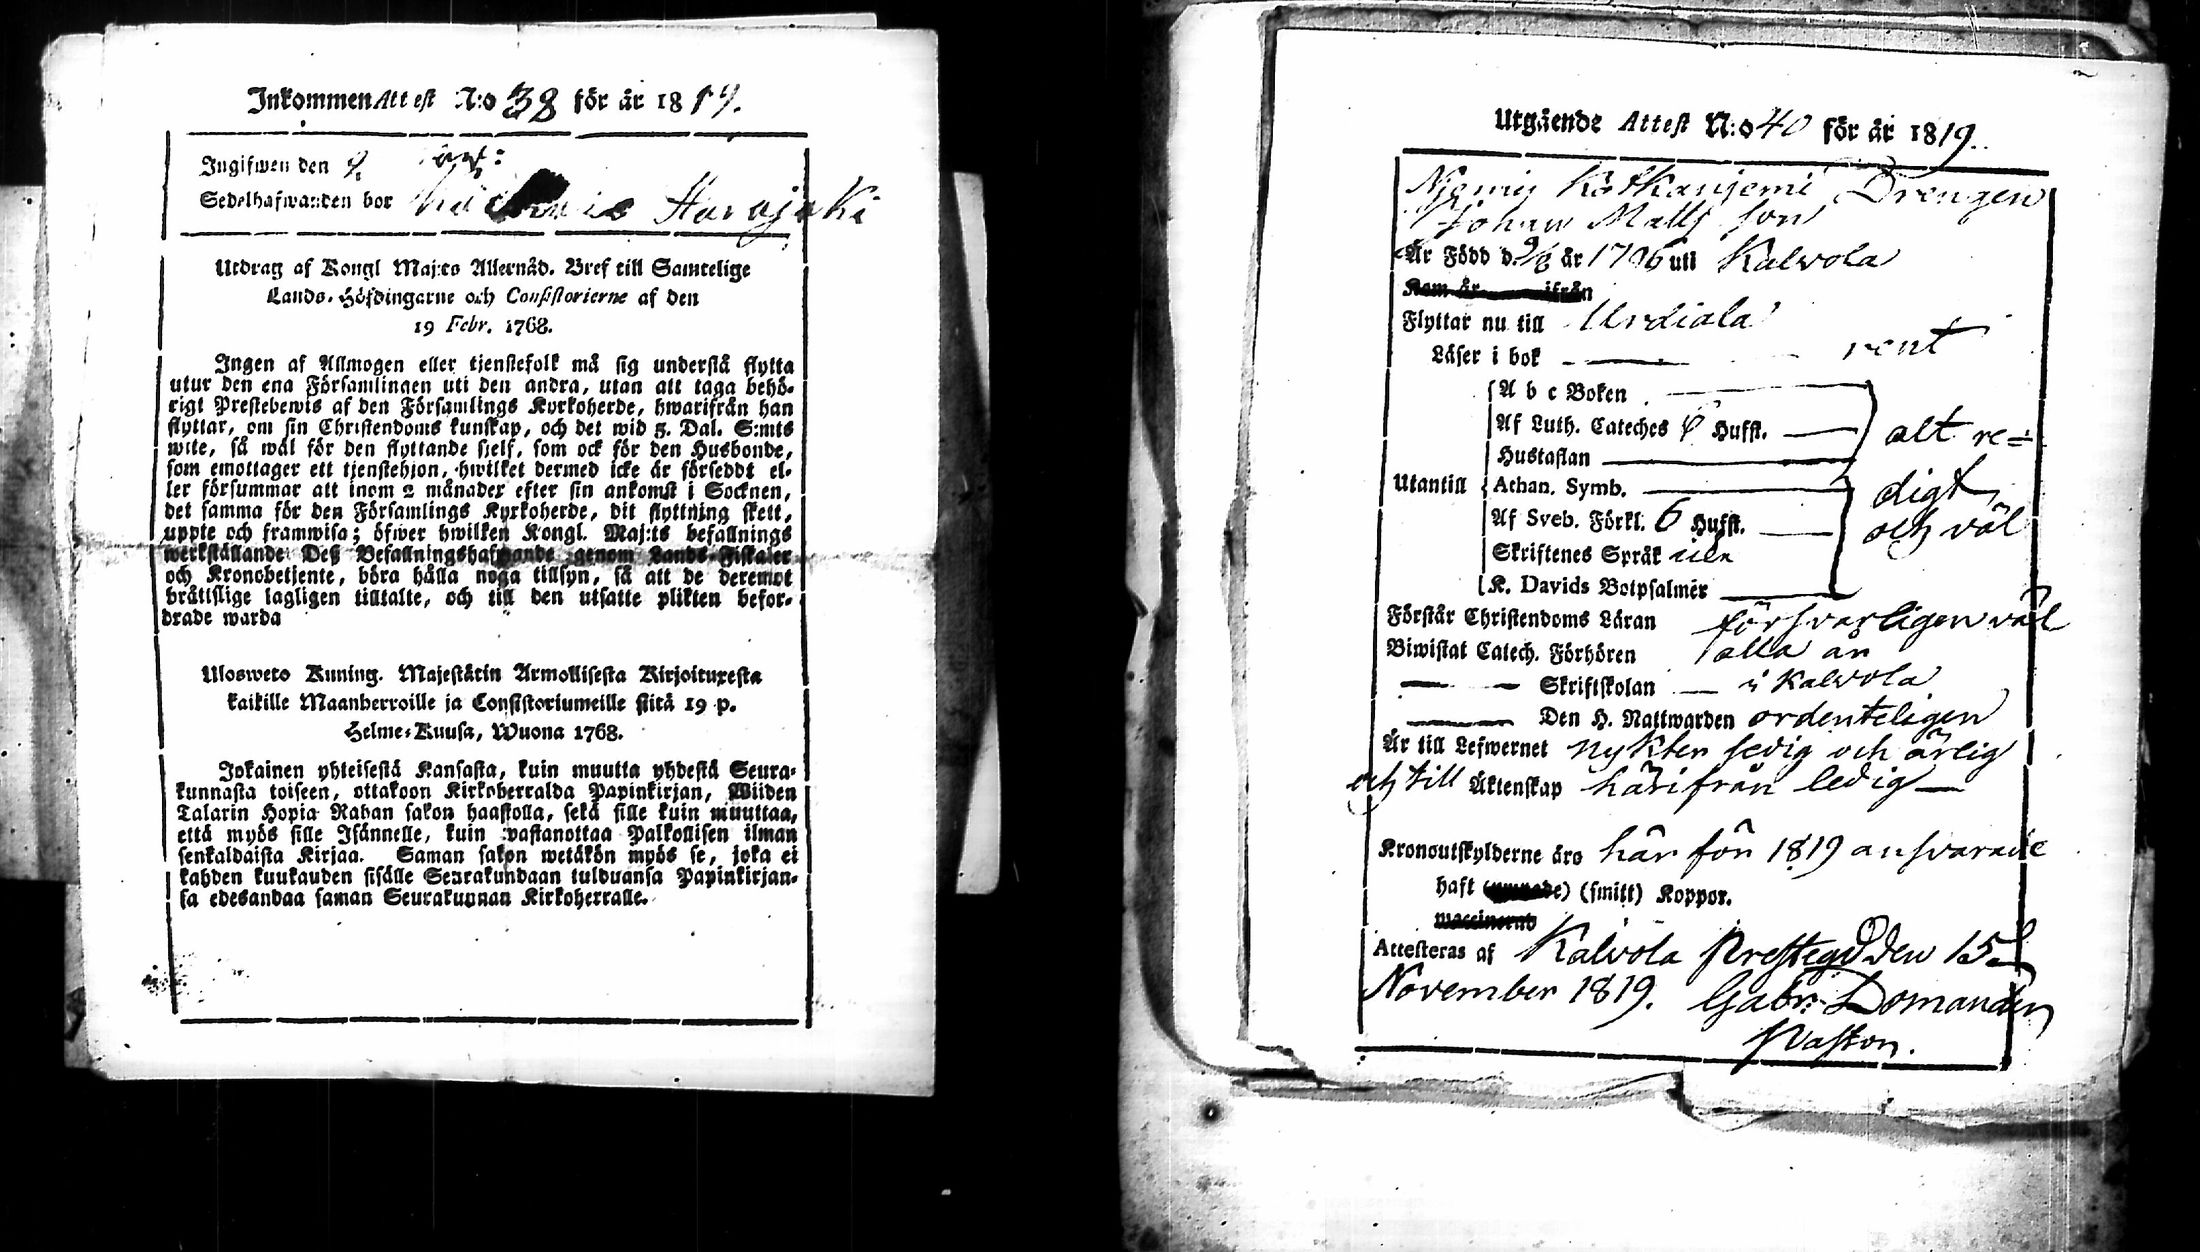 Inkommen Attest N:o 38 för år 1819.
Ingifwen den 2
Sedelhafwanden bor Harajaki
Utdrag af Kongl Maj:ts Allernåd. Bref till Samtelige
Lands-Höfdingarne och Consistorierne af den
19 Febr. 1768.
Ingen af Allmogen eller tjenstefolk må sig understå flytta
utur den ena Församlingen uti den andra, utan att taga behö-
rigt Prestebewis af den Församlings Kyrkoherde, hwarifrån han
flyttar, om sin Christendoms kunskap, och det wid 5. Dal. S:mts
wite, så wäl för den flyttande sjelf, som ock för den Husbonde,
som emottager ett tjenstehjon, hwilket dermed icke är förseddt el-
ler försummar att inom 2 månader efter sin ankomst i Socknen,
det samma för den Församlings Kyrkoherde, dit flyttning skett,
uppte och framwisa; öfwer hwilken Kongl. Maj:ts befallnings
werkställande Deß Befallningshafwande genom Lands-Fiskaler
och Kronobetjente, böra hålla noga tillsyn, så att de deremot
bråttslige lagligen tilltalte, och till den utsatte plikten befor-
drade warda
Ulosweto Kuning. Majestätin Armollisesta Kirjoituxesta
kaikille Maanherroille ja Consistoriumeille siitä 19 p.
Helme-Kuusa, Wuona 1768.
Jokainen yhteisestä Kansasta, kuin muutta yhdestä Seura-
kunnasta toiseen, ottakoon Kirkoherralda Papinkirjan, Wiiden
Talarin Hopia Rahan sakon haastolla, sekä sille kuin muuttaa,
että myös sille Isännelle, kuin vastanottaa Palkollisen ilman
senkaldaista Kirjaa. Saman sakon wetäkön myös se, joka ei
kahden kuukauden sisälle Seurakundaan tulduansa Papinkirjan-
sa edesandaa saman Seurakunnan Kirkoherralle.
Utgående Attest N:o 40 för år 1819.
Kotkanjemi Drengen
Johan Matts son
Är Född d. 9/8 år 1796 uti Kalvola
Kom är ifrån
Flyttar nu till Urdiala
Läser i bok rent
A b c Boken
Af Luth. Cateches 6 Hufst. alt re=
Hustaflan
Utantill Athan. Symb. digt
Af Sveb. Förkl. 6 Hufst. och väl
Skriftenes Språk
K. Davids Botpsalmer
Förstår Christendoms Läran försvarligen väl
Biwistat Catech. Förhören alla år
Skriftskolan i Kalvola
Den H. Nattwarden ordenteligen
Är till Lefwernet nykter sedig och ärlig
och till Äktenskap härifrån ledig
Kronoutskylderne äro här för 1819 ansvarade
haft (smitt) Koppor.
waccinerad
Attesteras af Kalvola Prestegd den 15
November 1819. Gabr: Domander
Pastor.